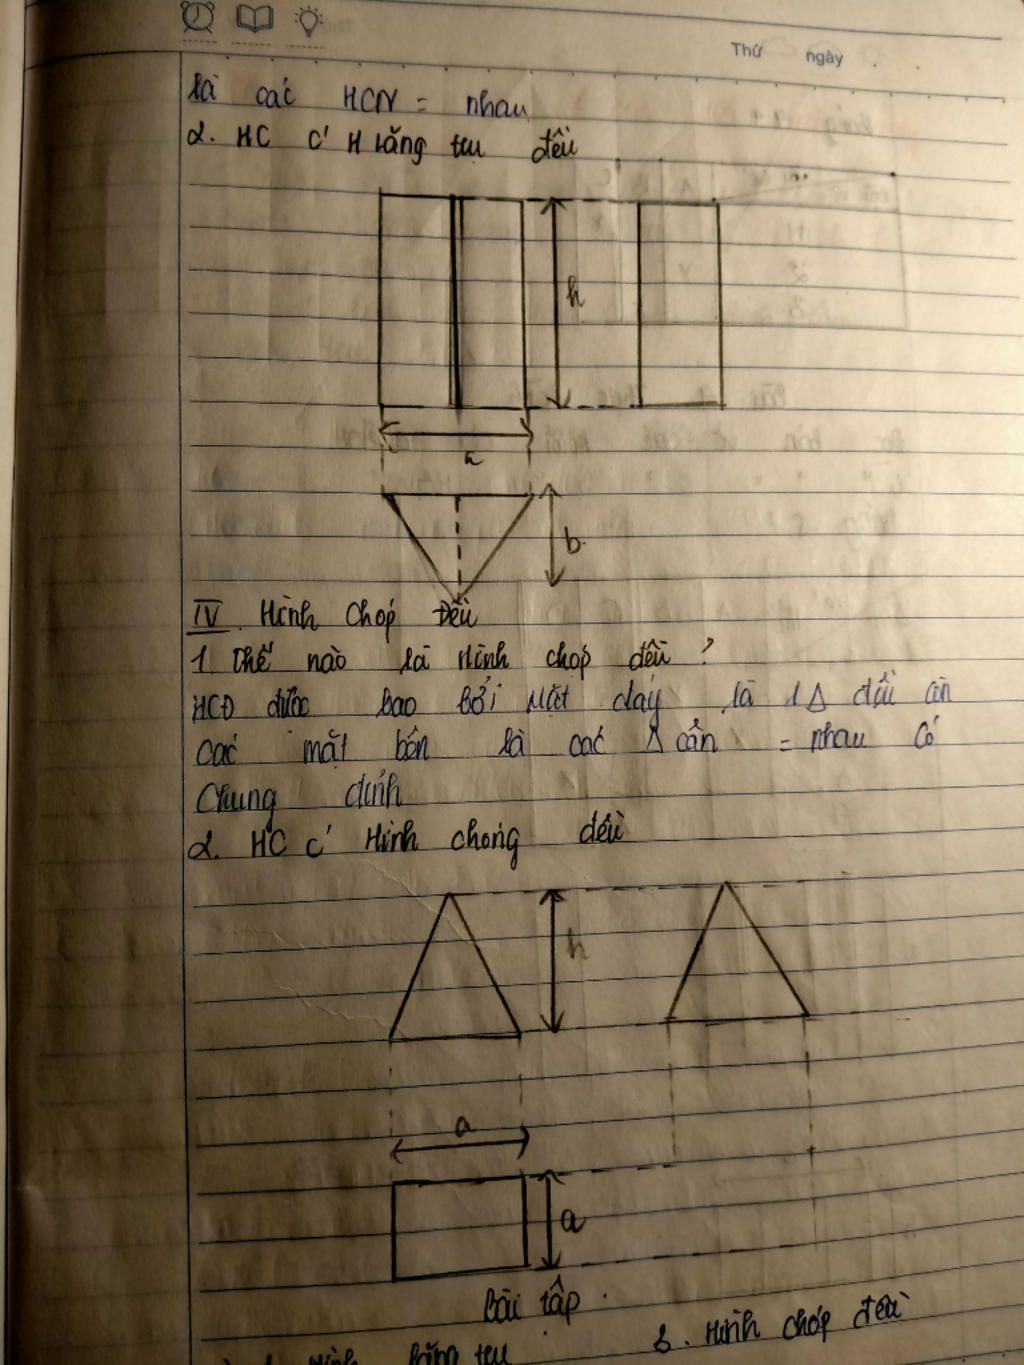 Thứ ngày
là các HCN = nhau
2. HC C' H lăng trụ đều
h
a
b
IV. Hình Chóp Đều
1. Thế nào là Hình chóp đều ?
HCĐ được bao bởi Mặt đáy là 1 Δ đều còn
các mặt bên là các Δ cân = nhau Có
Chung đỉnh
2. HC C' Hình chóng đều
h
a
a
Bài tập .
Hình lăng trụ
2. Hình chóp đều